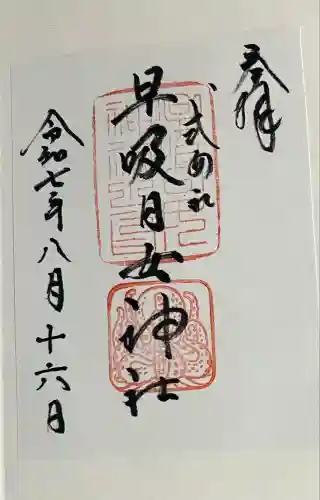 奉拝
式内社
早吸日女神社
令和七年八月十六日